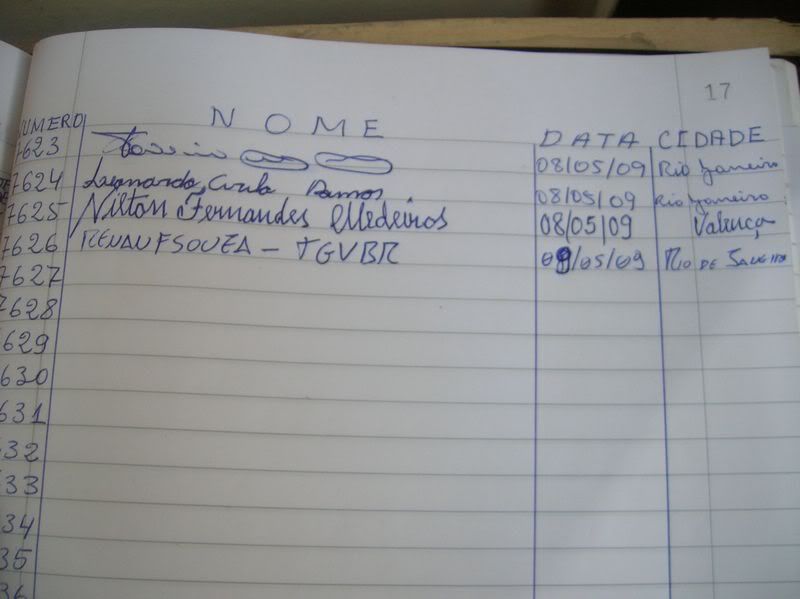 17
UMERO NOME DATA CIDADE
7623 08/05/09 Rio Janeiro
7624 Leonardo Ramos 08/05/09 Rio Janeiro
7625 Nilton Fernandes Medeiros 08/05/09 Valença
7626 RENAN F SOUZA - TGVBR 09/05/09 RIO DE JANEIRO
7627
7628
629
630
631
32
33
34
35
36